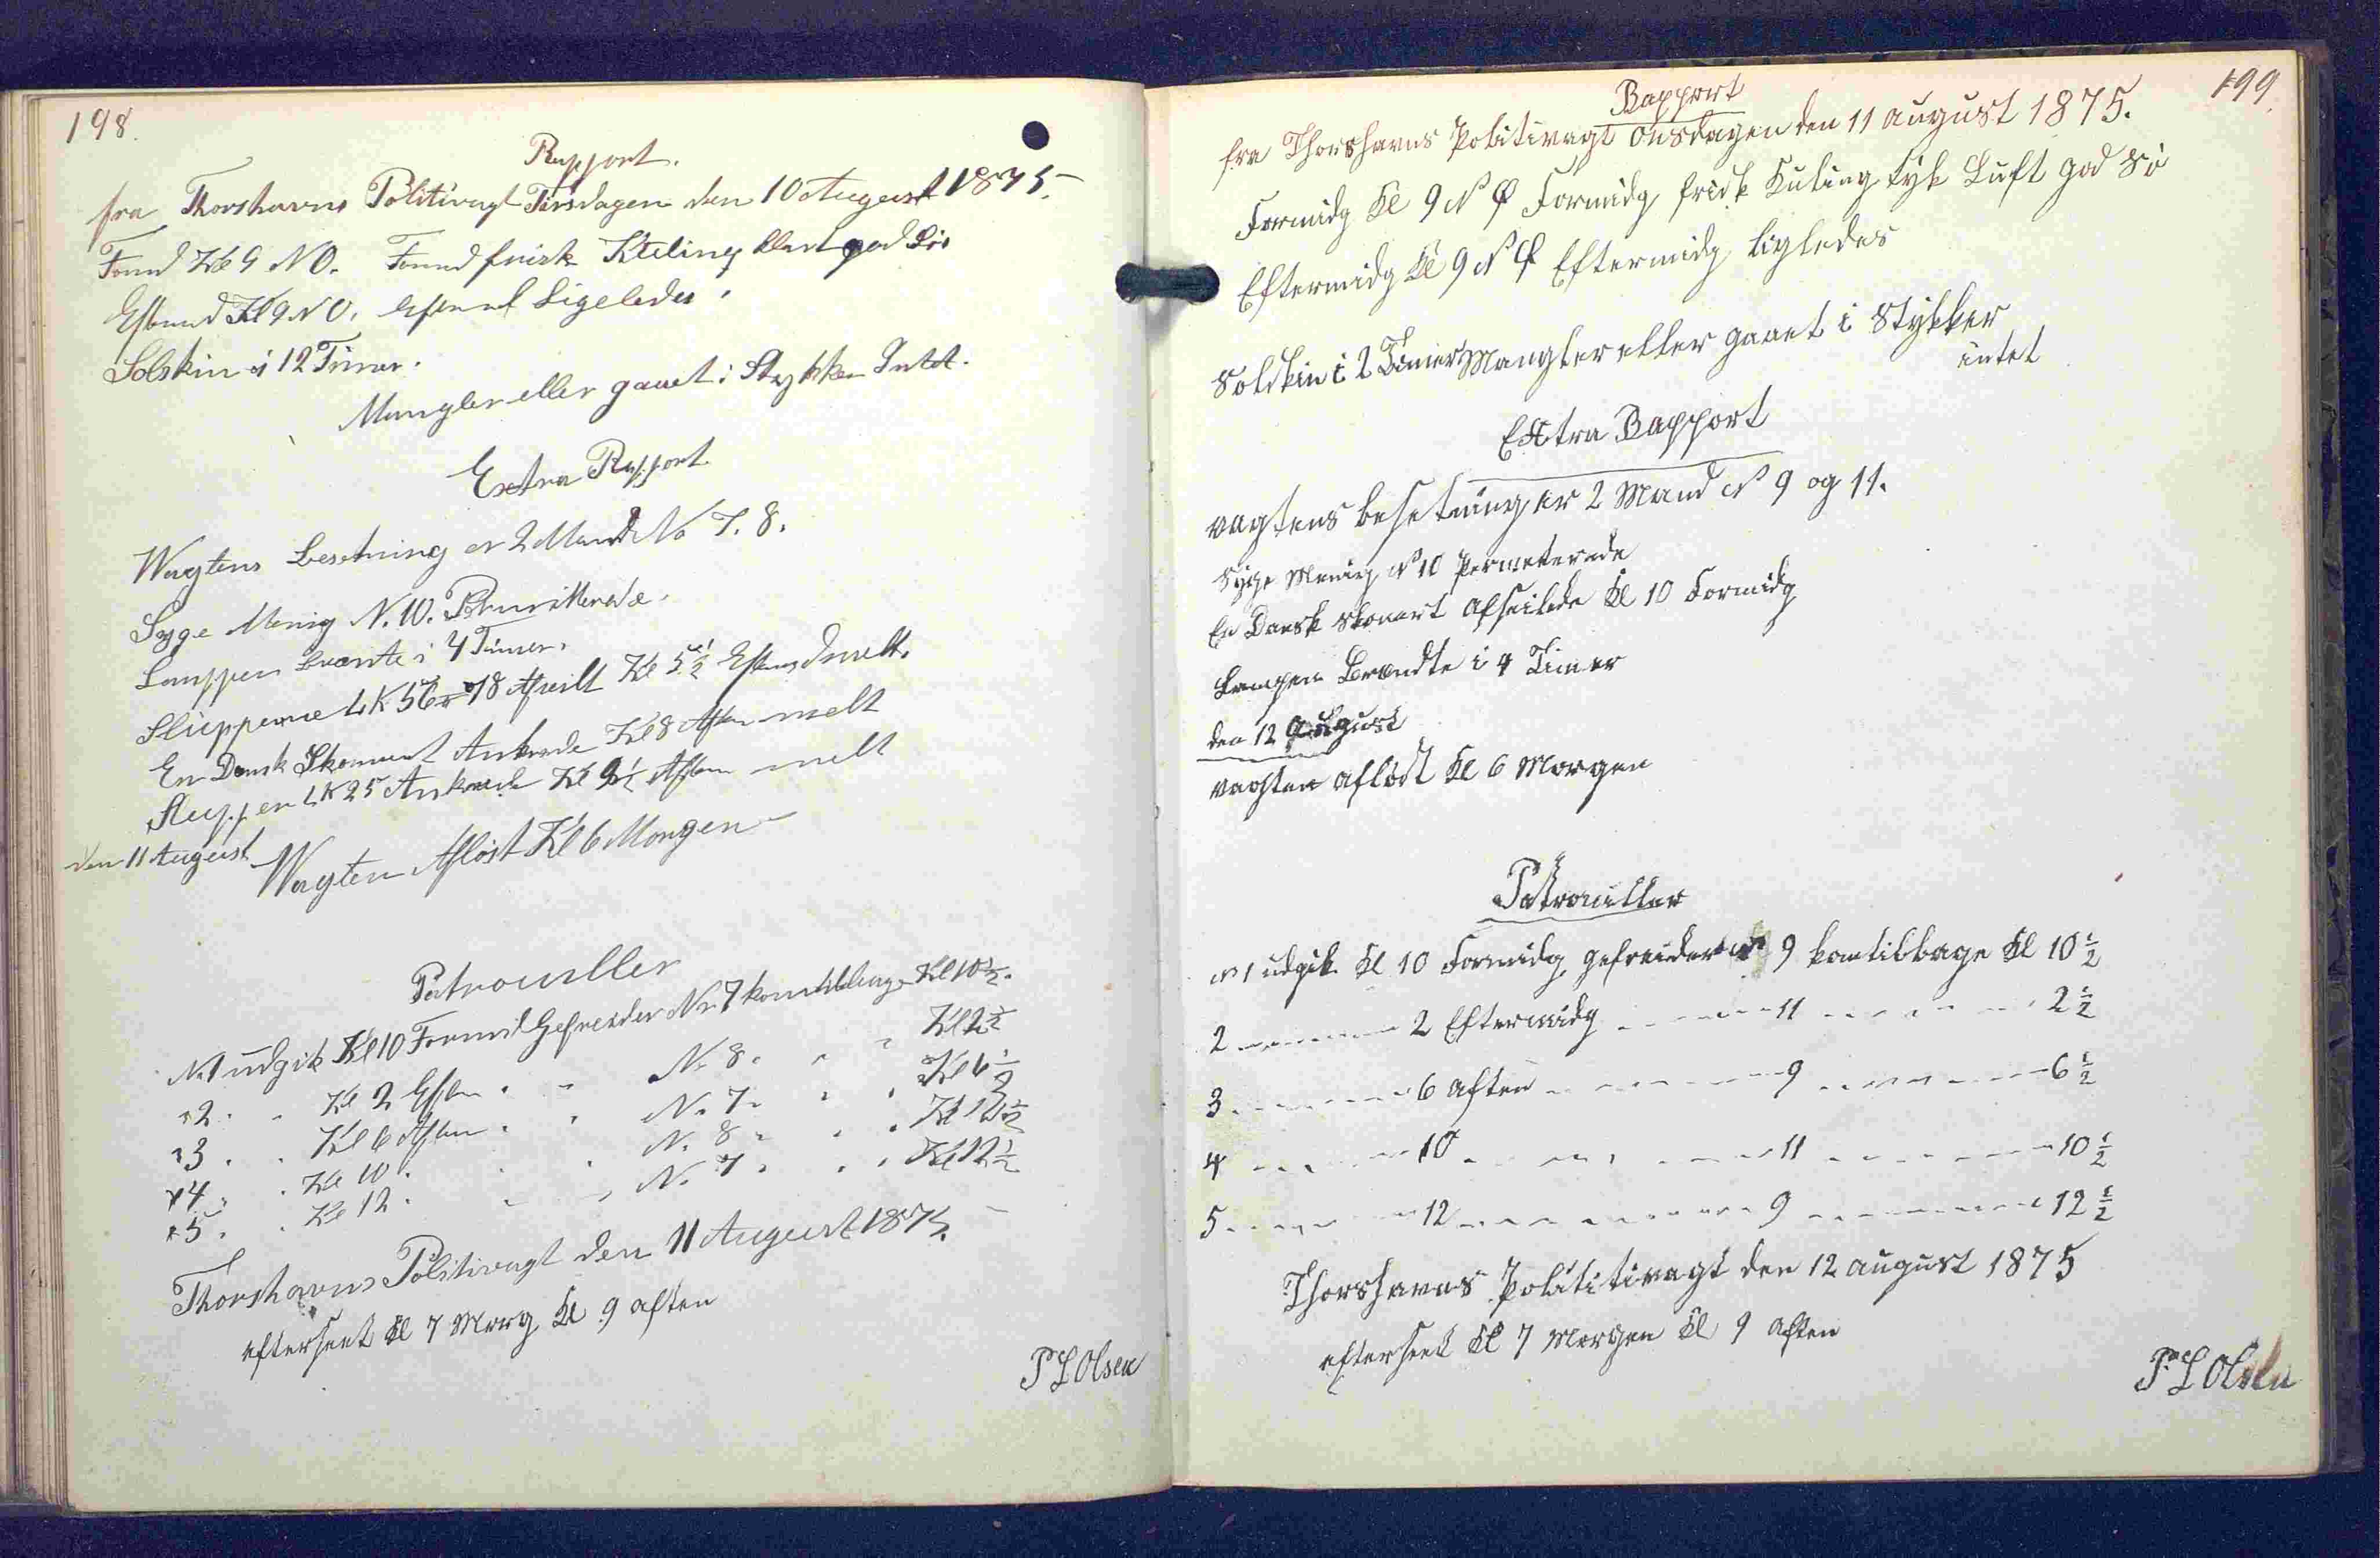 198.
Rapport.
fra Thorshavns Politivagt Tirsdagen den 10 August 1875.
Formd Kl 9 NO. Formd frisk Kuling klart god Sö
Eftmd Kl 9 NO. Eftmd Ligeledes.
Solskin i 12 Timer.
Mangler eller gaaet i Stykker Intet.
Extra Rapport
Wagtens besetning er 2 Mand No 7. 8.
Syge Menig N. 10. Permitterede.
Lamppen brænte i 4 Timer.
Slupperne LK 56 78 Afseilt Kl 5½ Efterm
En Dansk Skonnert Ankrede Kl 8 Aften melt
Sluppen LK 25 Ankrede Kl 9½ Aften melt
den 11 August
Wagten Afløst Kl 6 Morgen
Patrouller
N. 1 udgik Kl 10 Formid Gefreider Nr. 7 kom tilbage Kl 10½.
" 2. . Kl 2 Eftm . . N. 8. . . Kl 2½
" 3. . Kl 6 Aften . . N. 7. . . Kl 6½
" 4. . Kl 10. . . N. 8. . . Kl 10½
" 5. . Kl 12. . . N. 7. . . Kl 12½
Thorshavns Politivagt den 11 August 1875.
efterseet Kl 7 Morg Kl 9 aften
P L Olsen
199.
Rapport
fra Thorshavns Politivagt Onsdagen den 11 august 1875.
Formidg Kl 9 N Ø Formidg frisk Kuling tyk Luft god Sö
Eftermidg Kl 9 N Ø Eftermidg ligledes
Solskin i 2 Timer Mangler eller gaaet i Stykker
intet
Extra Rapport
vagtens besetning er 2 Mand N 9 og 11.
Syge Menig N 10 Permeterede
En Dansk Skonert Afseilede Kl 10 Formidg
Lampen Brændte i 4 Timer
den 12 August
vagten aflöst Kl 6 Morgen
Patrouiller
N 1 udgik Kl 10 Formidg gefreider N 9 kom tilbage Kl 10½
2 - - - 2 Eftermidg - - - 11 - - - 2½
3 - - - 6 Aften - - - 9 - - - 6½
4 - - - 10 - - - 11 - - - 10½
5 - - - 12 - - - 9 - - - 12½
Thorshavns Polititivagt den 12 august 1875
efterseet Kl 7 Morgen Kl 9 Aften
P L Olsen